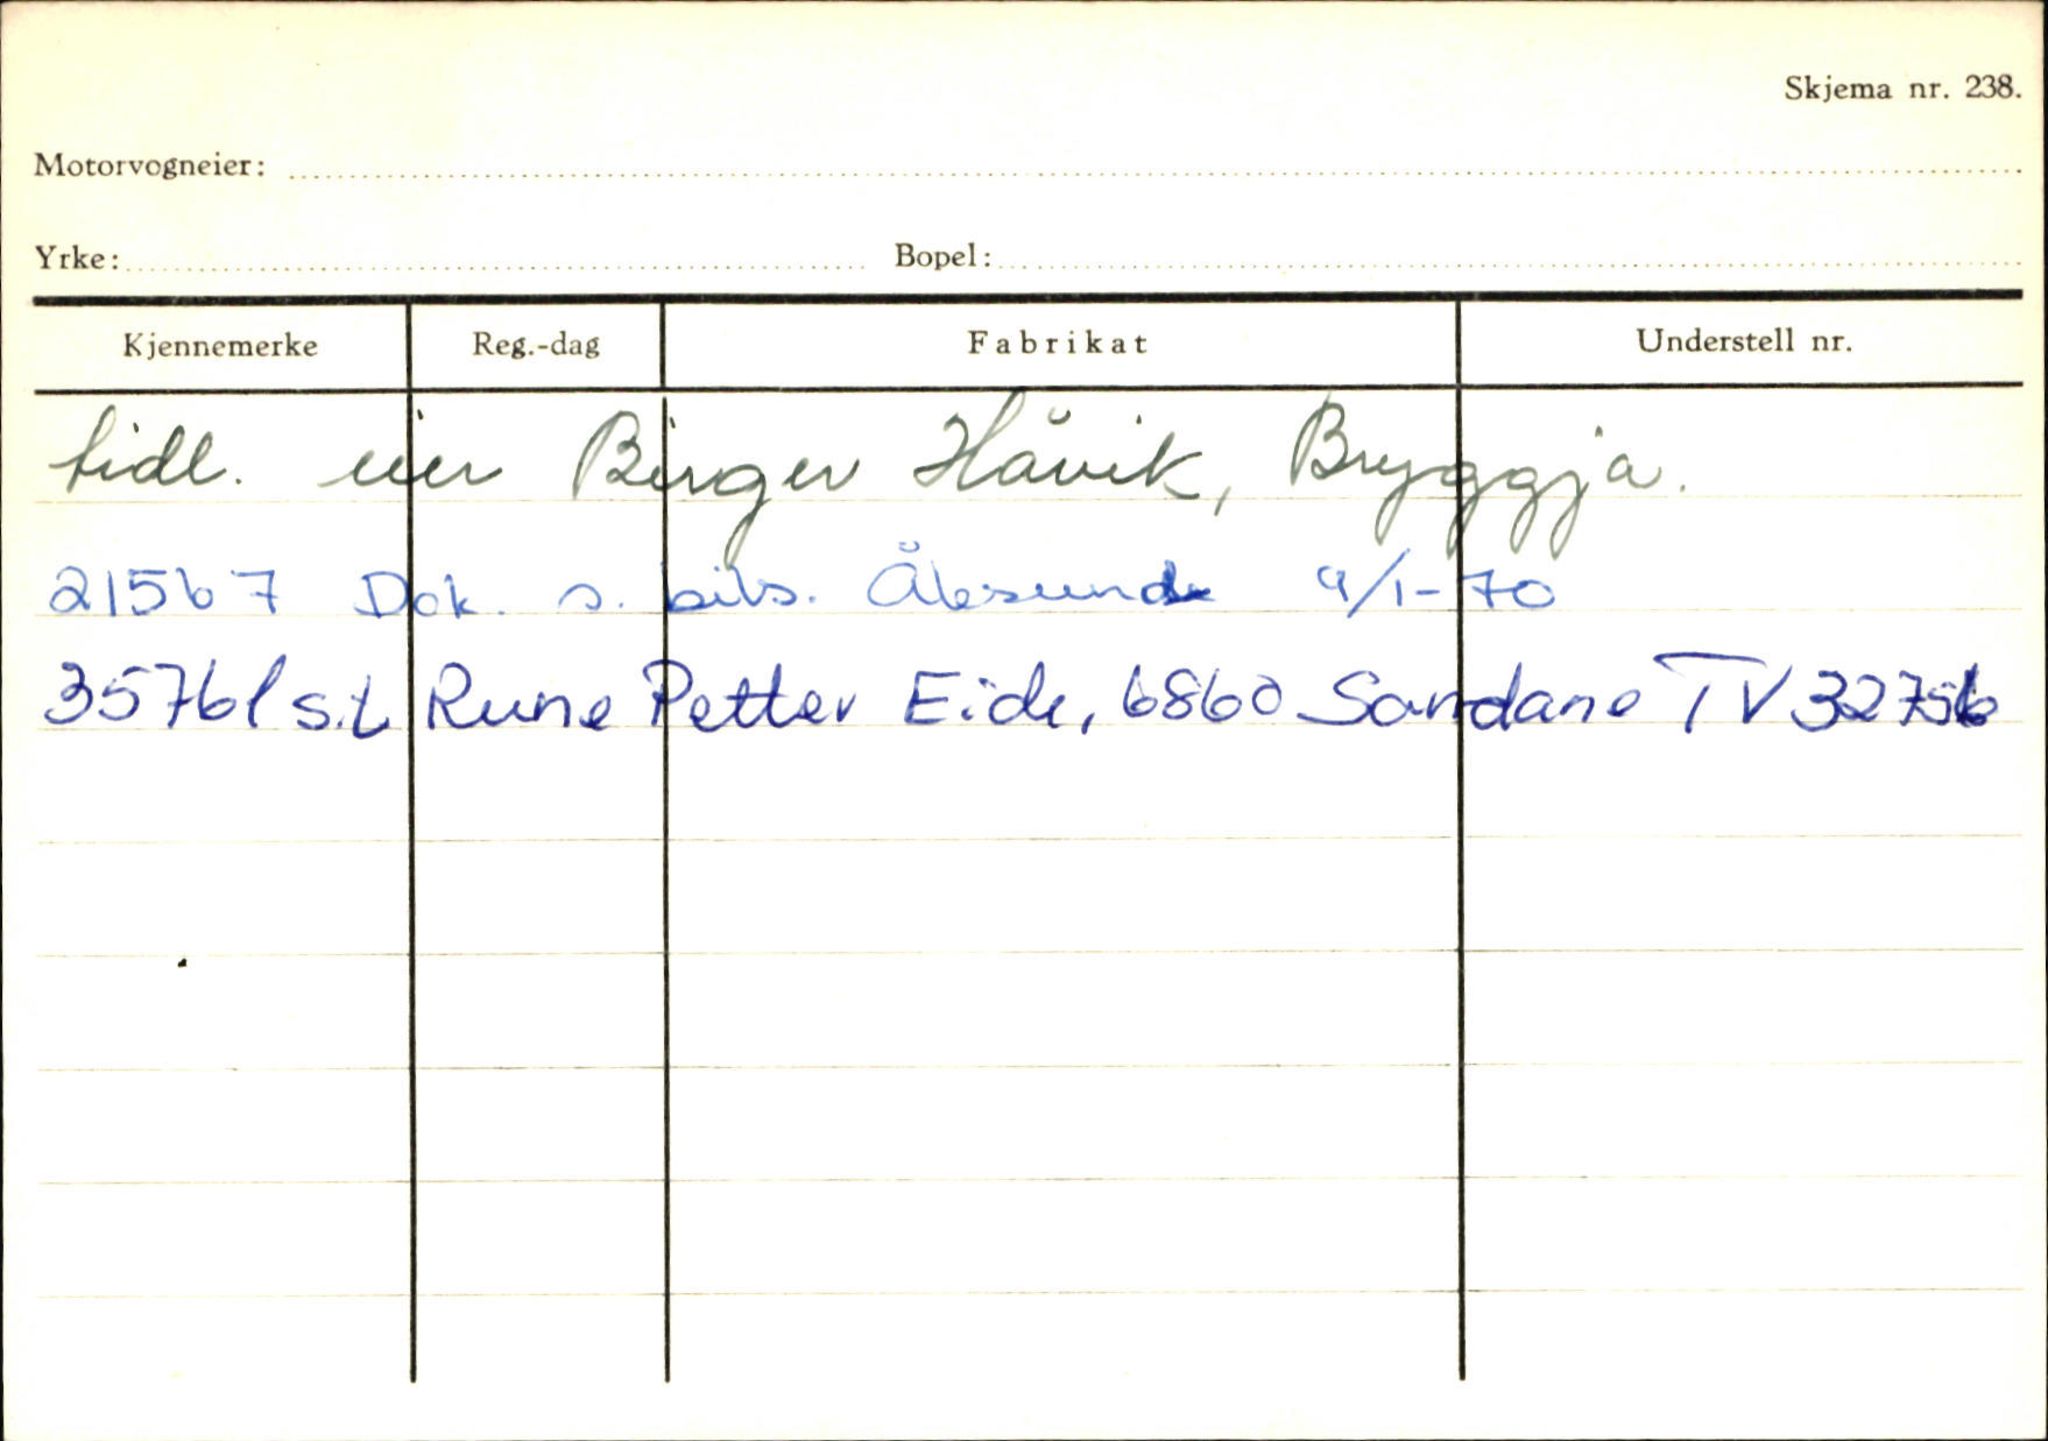 Skjema nr. 238.
Motorvogneier:
Yrke: Bopel:
Kjennemerke Reg.-dag Fabrikat Understell nr.
tidl. eier Birger Håvik, Bryggja.
21567 Dok. s. bils. Ålesund 9/1-70
35761 s.t Rune Petter Eide, 6860 Sandane TV